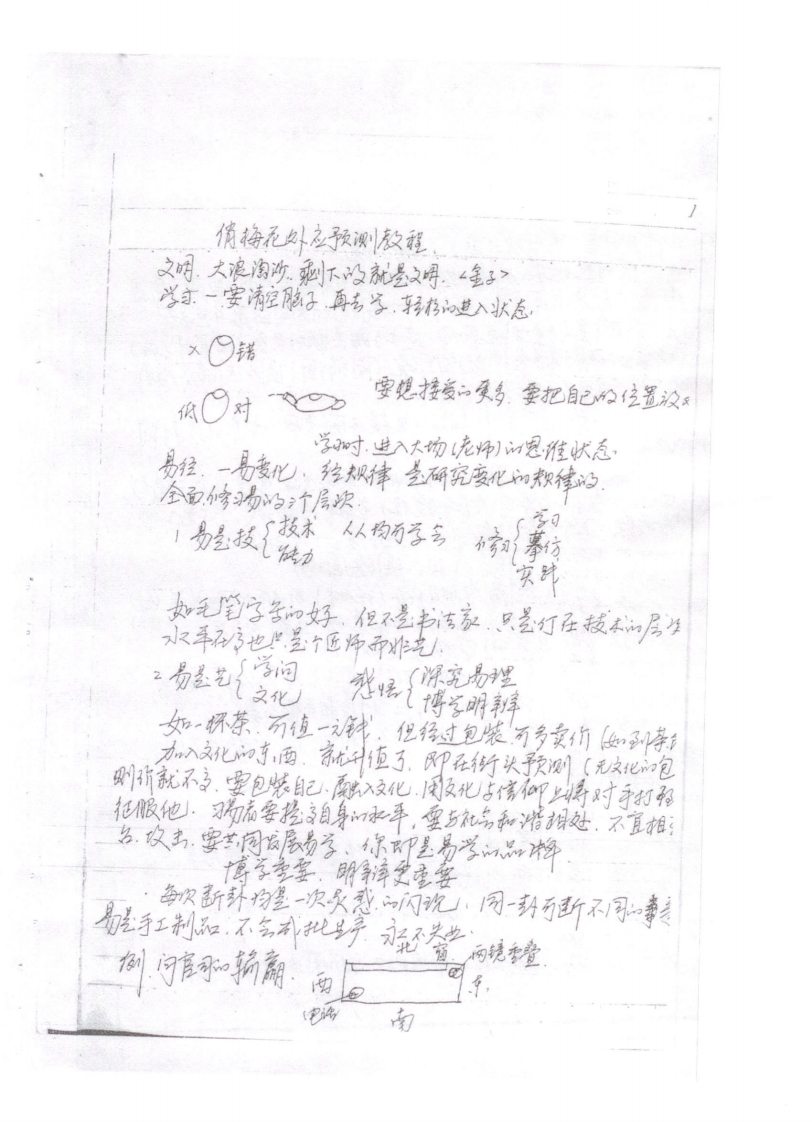 1
俏梅花外应预测教程
文明、大浪淘沙、剩下的就是文明、<金子>
学习一要清空脑子、再去学、轻松的进入状态.
× 错
低 对 要想接受的更多、要把自己的位置放
学习时、进入大场(老师)的思维状态.
易经、一易变化、经规律、是研究变化的规律的.
全面修习易的3个层次
1 易是技{技术 能力 人人均可学会 修习{学习 摹仿 实践
如毛笔字写的好、但不是书法家、只是停在技术的层
水平在高也只是个匠师而非艺.
2 易是艺{学问 文化 感悟{深究易理 博学明辨
如一杯茶、可值一元钱、但经过包装、可多卖价(如到茶
加入文化的东西、就升值了、即在街头预测(无文化的包
则价就不高、要包装自己、融入文化、用文化与信仰上将对手打
征服他、习易者要提高自身的水平、要与社会和谐相处、不宜相
攻击、要共同发展易学、你即是易学的品牌.
博学重要、明辨更重要
每次断卦均是一次灵感的闪现、同一卦可断不同的事
易是手工制品、不会成批生产、永不失业.
例、问官司的输赢.
北 窗 两镜重叠
西 东
电话 南